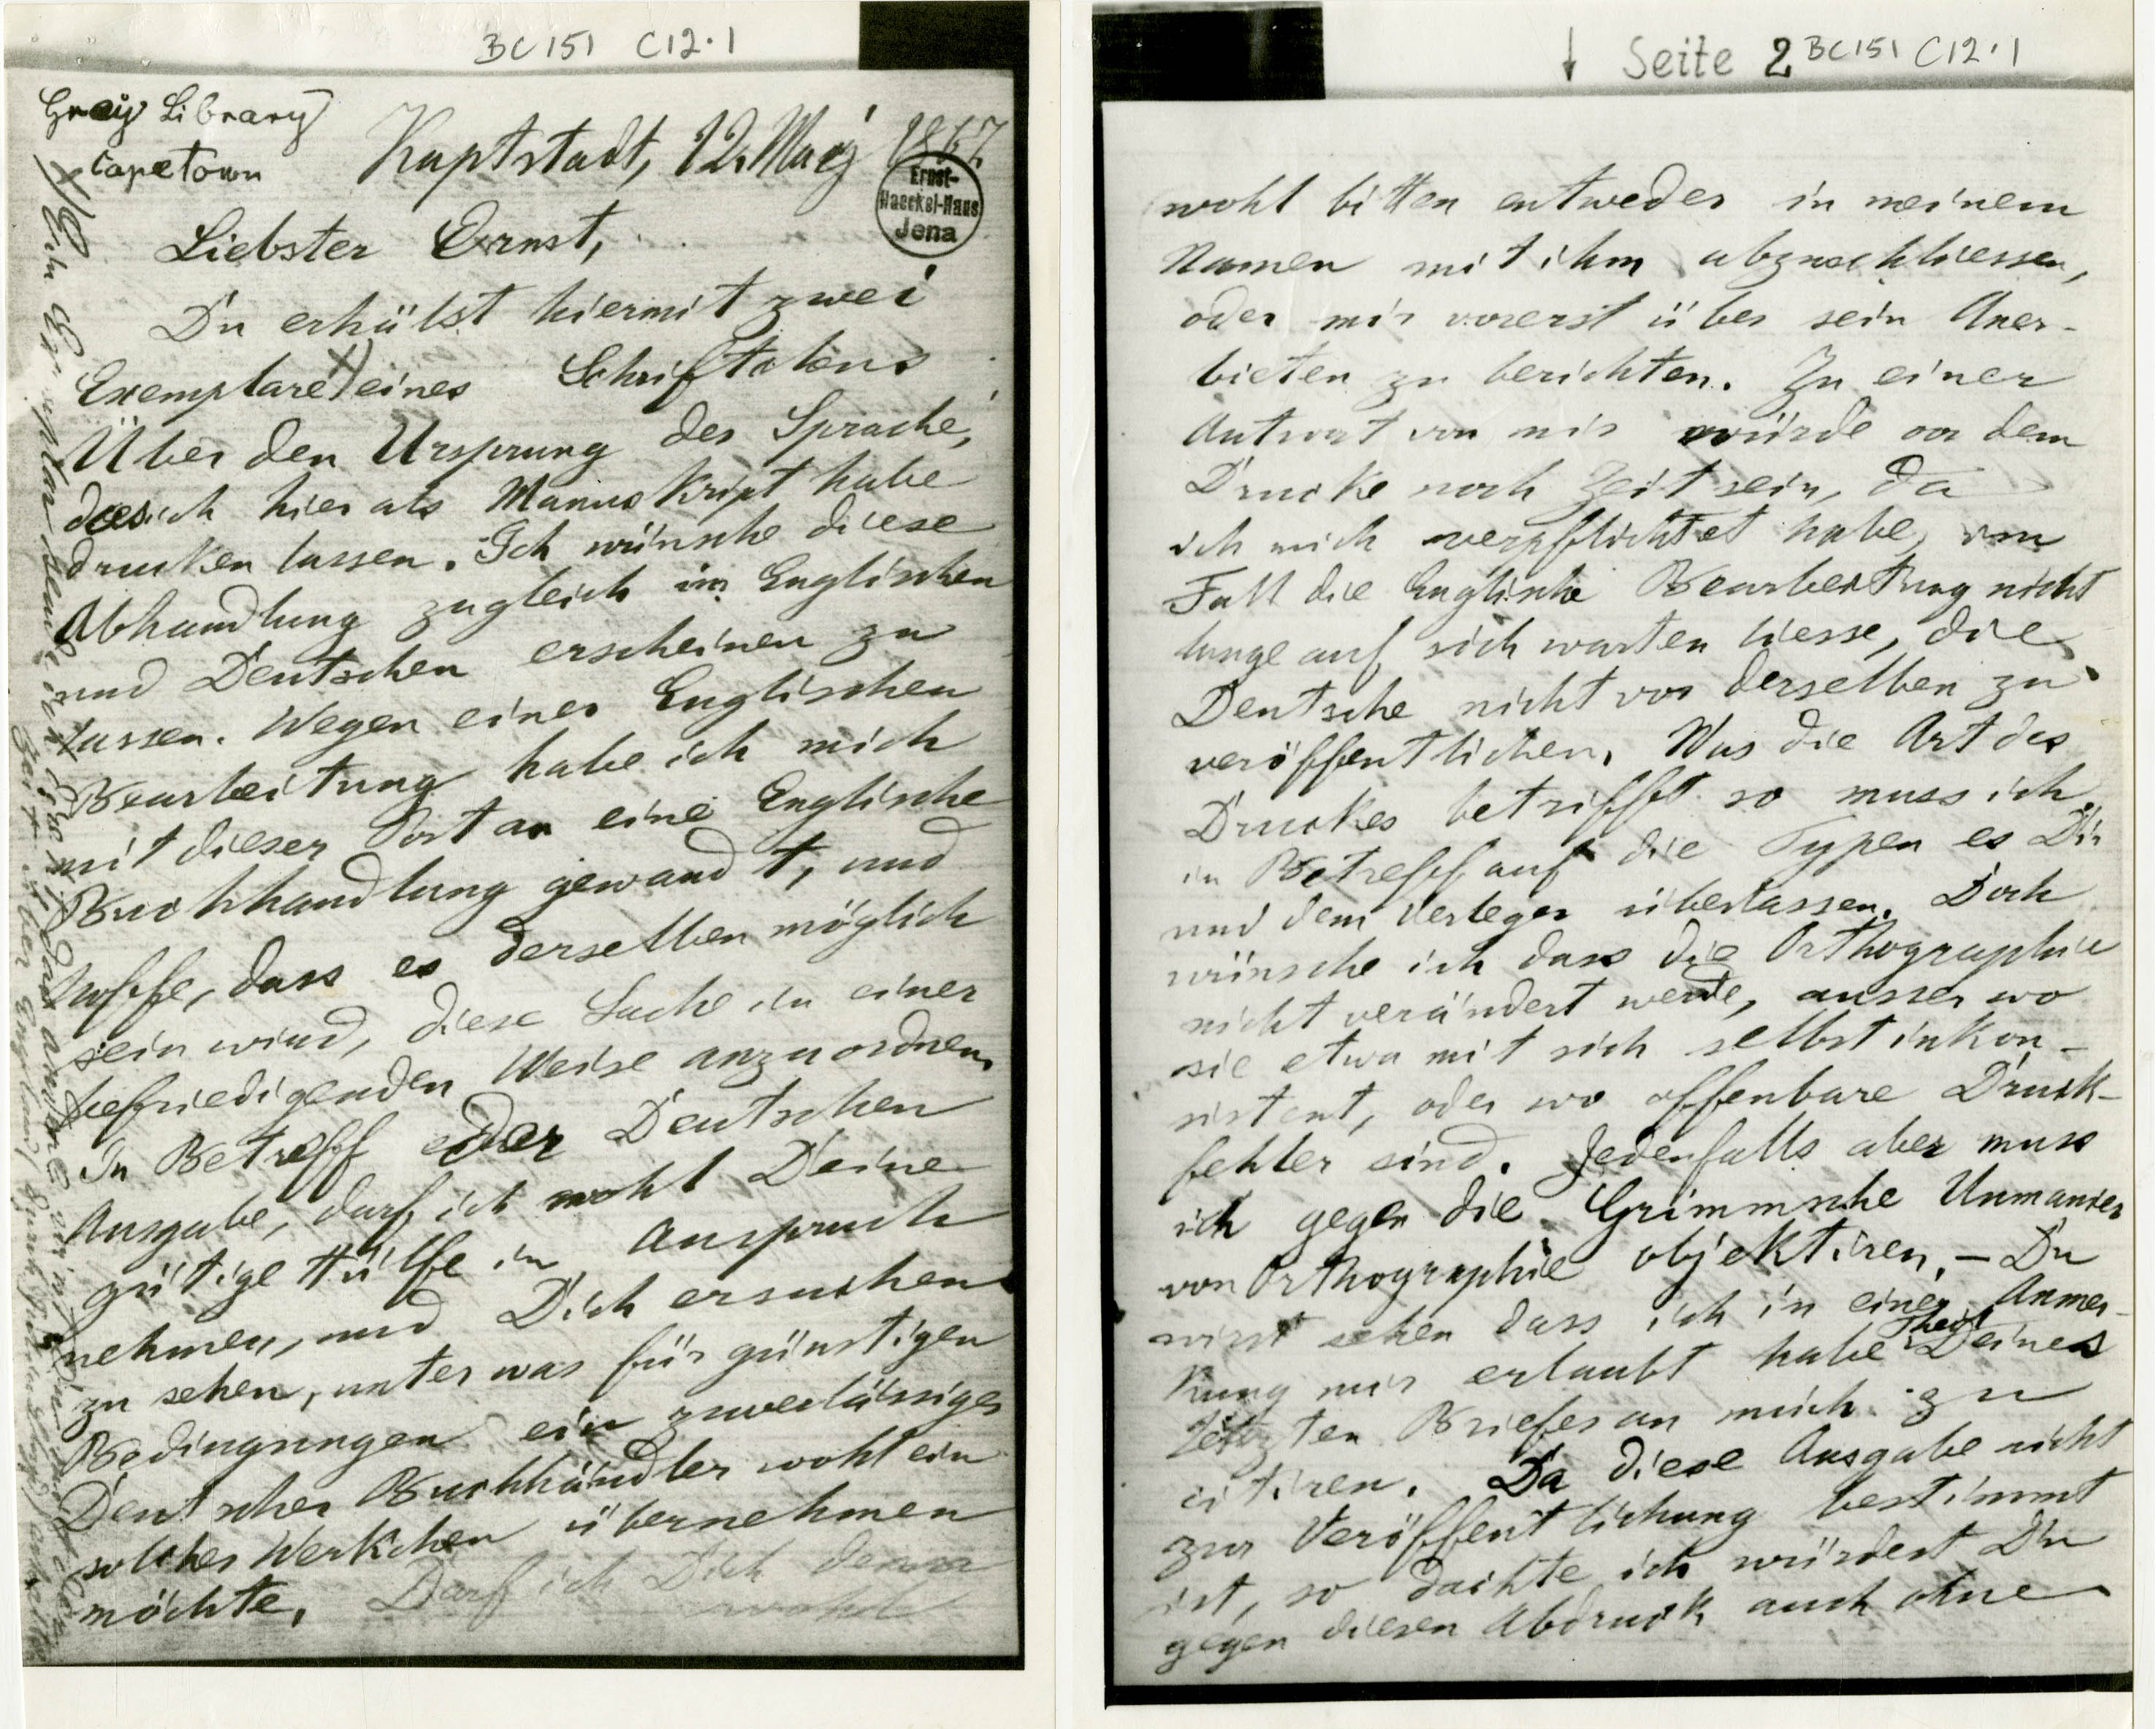 BC151 C12.1
Grey Library
Capetown
Kaptstadt, 12. Maij 1867
Ernst-
Haeckel-Haus
Jena
Liebster Ernst,
Du erhältst hiermit zwei
Exemplare x) eines Schriftchens
Über den Ursprung der Sprache,
das ich hier als Manuskript habe
drucken lassen. Ich wünsche diese
Abhandlung zugleich im Englischen
und Deutschen erscheinen zu
lassen. Wegen einer Englischen
Bearbeitung habe ich mich
mit dieser Post an eine Englische
Buchhandlung gewandt, und
hoffe, dass es derselben möglich
sein wird, diese Sache in einer
befriedigenden Weise anzuordnen.
In Betreff der Deutschen
Ausgabe, darf ich wohl Deine
gütige Hülfe in Anspruch
nehmen, und Dich ersuchen
zu sehen, unter was für günstigen
Bedingungen ein zuverlässiger
Deutscher Buchhändler wohl ein
solches Werkchen übernehmen
möchte. Darf ich Dich denn
wohl
x) Ein Exemplar
↓ Seite 2 BC151 C12.1
wohl bitten entweder in meinem
Namen mit ihm abzuschliessen,
oder mir vorerst über sein Aner-
bieten zu berichten. Zu einer
Antwort von mir würde vor dem
Drucke noch Zeit sein, da
ich mich verpflichtet habe, im
Fall die Englische Bearbeitung nicht
lange auf sich warten liesse, die
Deutsche nicht vor derselben zu
veröffentlichen. Was die Art des
Druckes betrifft so muss ich
in Betreff auf die Typen es Dir
und dem Verleger überlassen. Doch
wünsche ich dass die Orthographie
nicht verändert werde, ausser wo
sie etwa mit sich selbst inkon-
sistent, oder wo offenbare Druck-
fehler sind. Jedenfalls aber muss
ich gegen die Grimmsche Unmanier
von Orthographie objektiren. – Du
wirst sehen dass ich in einer Anmer-
kung mir erlaubt habe Theil Deines
letzten Briefes an mich zu
citiren. Da diese Ausgabe nicht
zur Veröffentlichung bestimmt
ist, so dachte ich würdest Du
gegen diesen Abdruck auch ohne